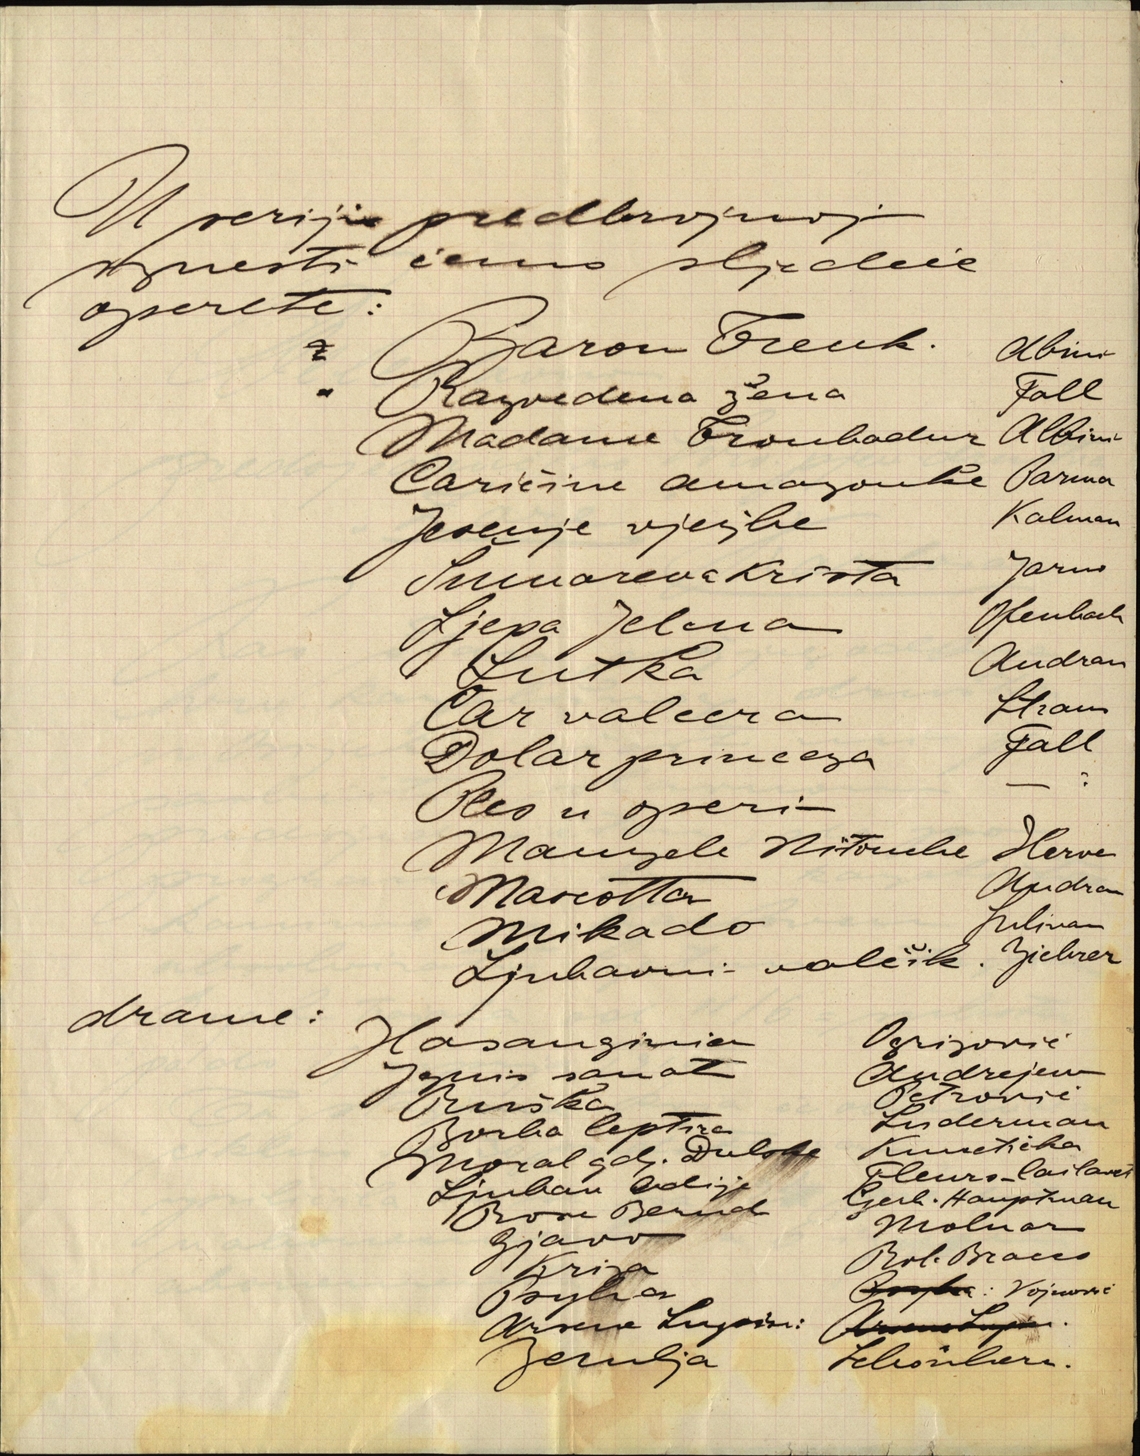 U seriji predbrojnoj
iznesti ćemo sljedeće
operete:
Baron Trenk. Albini
Razvedena žena Fall
Madame Troubadur Albini
Caričine amazonke Parma
Jesenje vježbe Kalman
Šumareva Krista Jarno
Ljepa Jelena Ofenbach
Lutka Audran
Čar valcera Straus
Dolar princeza Fall
Ples u operi — "
Mamzele Nitouche Herve
Mascotta Audran
Mikado Sulivan
Ljubavni valčik. Ziehrer
drame:
Hasanginica Ogrizović
Ignis sanat Andrejew
Ruška Petrović
Borba leptira Suderman
Moral gdj. Dulske
Ljubav bdije Fleurs-Caillavet
Rose Bernd Gerh. Hauptman
Gjavo Molnar
Kriza Rob. Bracco
Psyha Psyha: Vojnović
Arsene Lupin: Arsene Lupin.
Zemlja Schönherr.